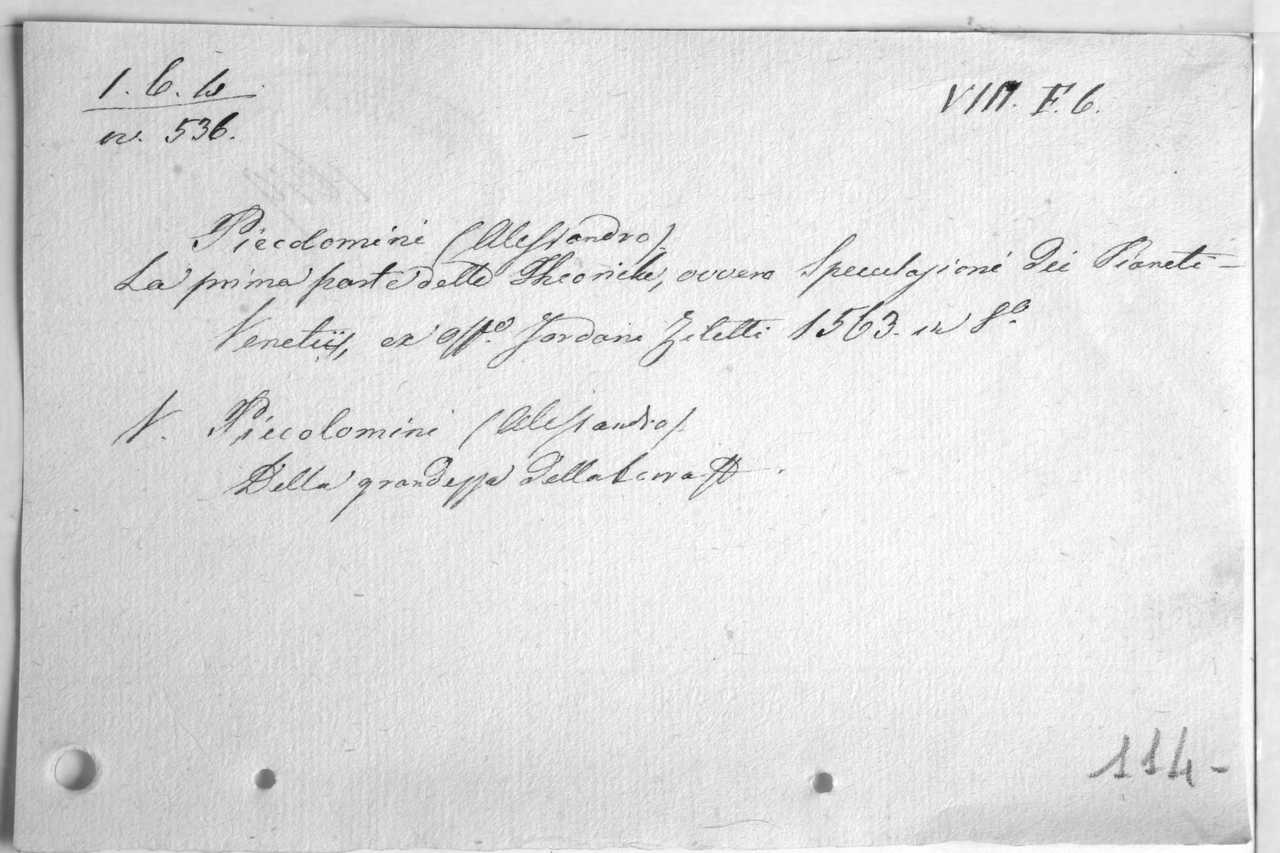 1. C. 10
nr. 536.
VIII. F. 6.
Piccolomini (Alessandro)
La prima parte delle Theoriche, ovvero Speculazioni dei Pianeti -
Venetiis, ex offa. Jordani Ziletti 1563. in 8o.
V. Piccolomini (Alessandro)
Della grandezza della
114 -